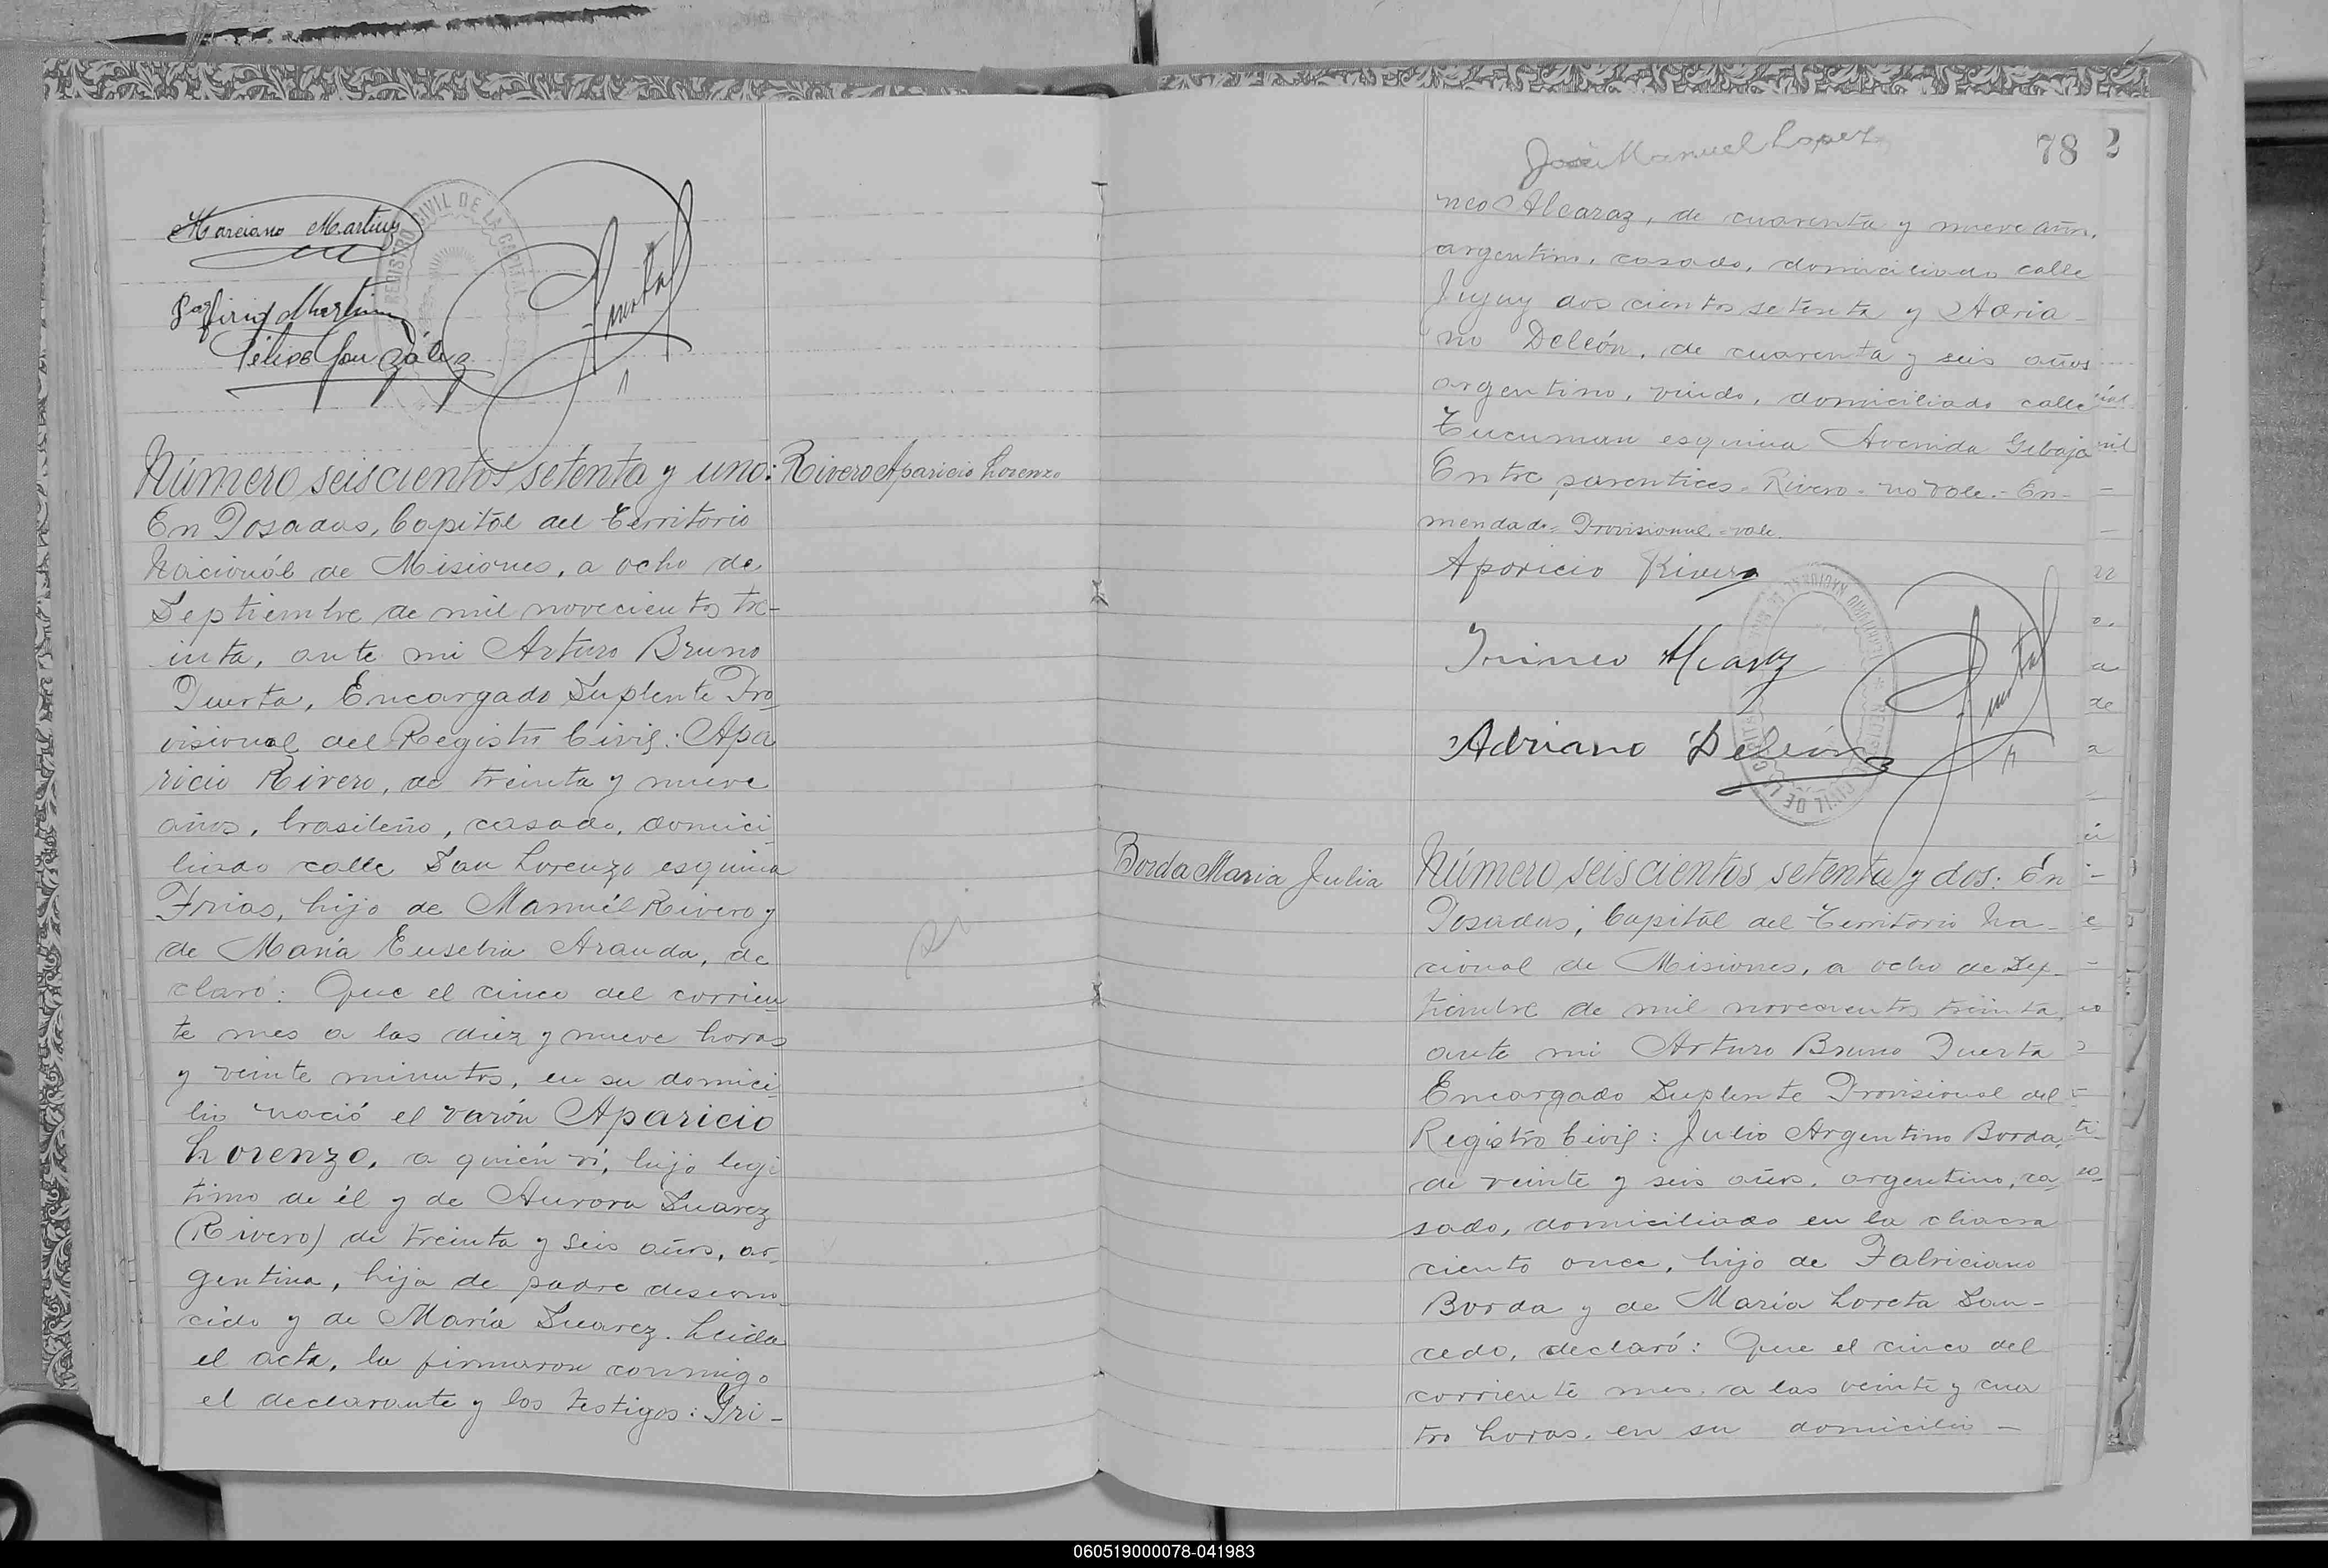 Marciano Martinez
Porfirio Martinez
Felipe González
REGISTRO CIVIL DE LA CAPITAL
Puerta
Número seiscientos setenta y uno:
Rivero Aparicio Lorenzo
En Posadas, Capitál del Territorio
Nacionál de Misiones, a ocho de
Septiembre de mil novecientos tre-
inta, ante mi Arturo Bruno
Puerta, Encargado Suplente Pro
visional del Registro Civil: Apa
ricio Rivero, de treinta y nueve
años, brasileño, casado, domici
liado calle San Lorenzo esquina
Frias, hijo de Manuél Rivero y
de María Eusebia Aranda, de
claró: Que el cinco del corrien-
te mes a las diez y nueve horas
y veinte minutos, en su domici-
lio nació el varón Aparicio
Lorenzo, a quién ví, hijo legi
timo de él y de Aurora Suarez
(Rivero) de treinta y seis años, ar-
gentina, hija de padre descono-
cido y de María Suarez. Leida
el acta, la firmaron conmigo
el declarante y los testigos: Yri-
José Manuel Lopez
78
neo Alcaraz, de cuarenta y nueve años,
argentino, casado, domiciliado calle
Jujuy dos cientos setenta y Adria-
no Deleón, de cuarenta y seis años
argentino, viudo, domiciliado calle
Tucuman esquina Avenida Gibaja
Entre parentices = Rivero = no vale. = En-
mendado = Provisional = vale.
Aparicio Rivero
Irineo Alcaraz
Adriano Deleón
Puerta
Borda Maria Julia
Número seiscientos setenta y dos: En
Posadas, Capitál del Territorio Na-
cional de Misiones, a ocho de Sep-
tiembre de mil novecientos treinta,
ante mi Arturo Bruno Puerta
Encargado Suplente Provisional del
Registro Civil: Julio Argentino Borda,
de veinte y seis años, argentino, ca-
sado, domiciliado en la chacra
ciento once, hijo de Fabriciano
Borda y de María Loreta Sau-
cedo, declaró: Que el cinco del
corriente mes, a las veinte y cua
tro horas, en su domicilio -
060519000078-041983